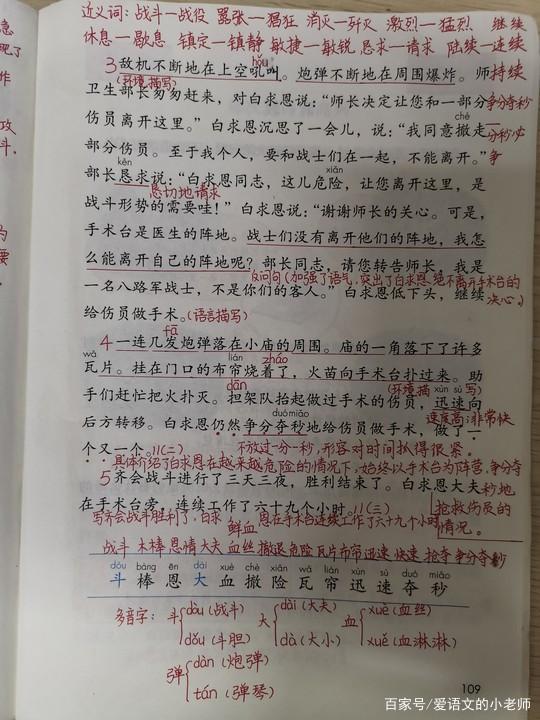 近义词：战斗—战役 嚣张—猖狂 消灭—歼灭 激烈—猛烈 继续
休息—歇息 镇定—镇静 敏捷—敏锐 恳求—请求 陆续—连续
hǒu
3 敌机不断地在上空吼叫。炮弹不断地在周围爆炸。师持续
(环境描写)
卫生部长匆匆赶来，对白求恩说：“师长决定让您和一部分争分夺秒
chè
伤员离开这里。”白求恩沉思了一会儿，说：“我同意撤走一分秒必
部分伤员。至于我个人，要和战士们在一起，不能离开。”争
kěn xiǎn
部长恳求说：“白求恩同志，这儿危险，让您离开这里，是
恳切地请求
战斗形势的需要哇！”白求恩说：“谢谢师长的关心。可是，
手术台是医生的阵地。战士们没有离开他们的阵地，我怎
么能离开自己的阵地呢？部长同志，请您转告师长，我是
反问句(加强了语气，突出了白求恩绝不离开手术台的
一名八路军战士，不是你们的客人。”白求恩低下头，继续 决心。)
给伤员做手术。(语言描写)
fā
4 一连几发炮弹落在小庙的周围。庙的一角落下了许多
wǎ lián zháo
瓦片。挂在门口的布帘烧着了，火苗向手术台扑过来。助
dān (环境描写) xùn sù
手们赶忙把火扑灭。担架队抬起做过手术的伤员，迅速向
duó miǎo 速度高；非常快
后方转移。白求恩仍然争分夺秒地给伤员做手术，做了一
个又一个。//(二) 不放过一分一秒，形容对时间抓得很紧。
具体介绍了白求恩在越来越危险的情况下，始终以手术台为阵营，争分夺
5 齐会战斗进行了三天三夜，胜利结束了。白求恩大夫 秒地
在手术台旁，连续工作了六十九个小时。//(三) 抢救伤员的
写齐会战斗胜利了，白求恩在手术台连续工作了六十九个小时 情况。
鲜血
战斗 木棒 恩情 大夫 血丝 撤退 危险 瓦片 布帘 迅速 快速 抢夺 争分夺秒
dòu bàng ēn dài xuè chè xiǎn wǎ lián xùn sù duó miǎo
斗 棒 恩 大 血 撤 险 瓦 帘 迅 速 夺 秒
多音字：斗 dòu (战斗) 大 dài (大夫) 血 xuè (血丝)
dǒu (斗胆) dà (大小) xuě (血淋淋)
弹 dàn (炮弹)
tán (弹琴)
109
百家号/爱语文的小老师